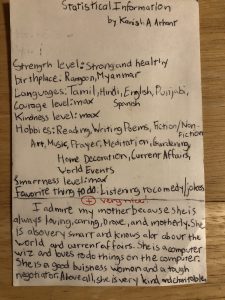 Statistical Information
by Kavish A Arhant
Strength level: Strong and healthy
birthplace: Rangon, Myanmar
Languages: Tamil, Hindi, English, Punjabi,
Spanish
Courage level: max
Kindness level: max
Hobbies: Reading, Writing Poems, Fiction/Non-
Fiction
Art, Music, Prayer, Meditation, Gardening,
Home Decoration, Current Affairs,
World Events
Smartness level: max
Favorite thing to do: Listening to comedy/jokes
+ very nice!
I admire my mother because she is
always loving, caring, brave, and, motherly. She
is also very smart and knows alot about the
world and current affairs. She is a computer
wiz and loves to do things on the computer.
She is a good buisness women and a tough
negotiator. Above all, she is very kind and charitable.